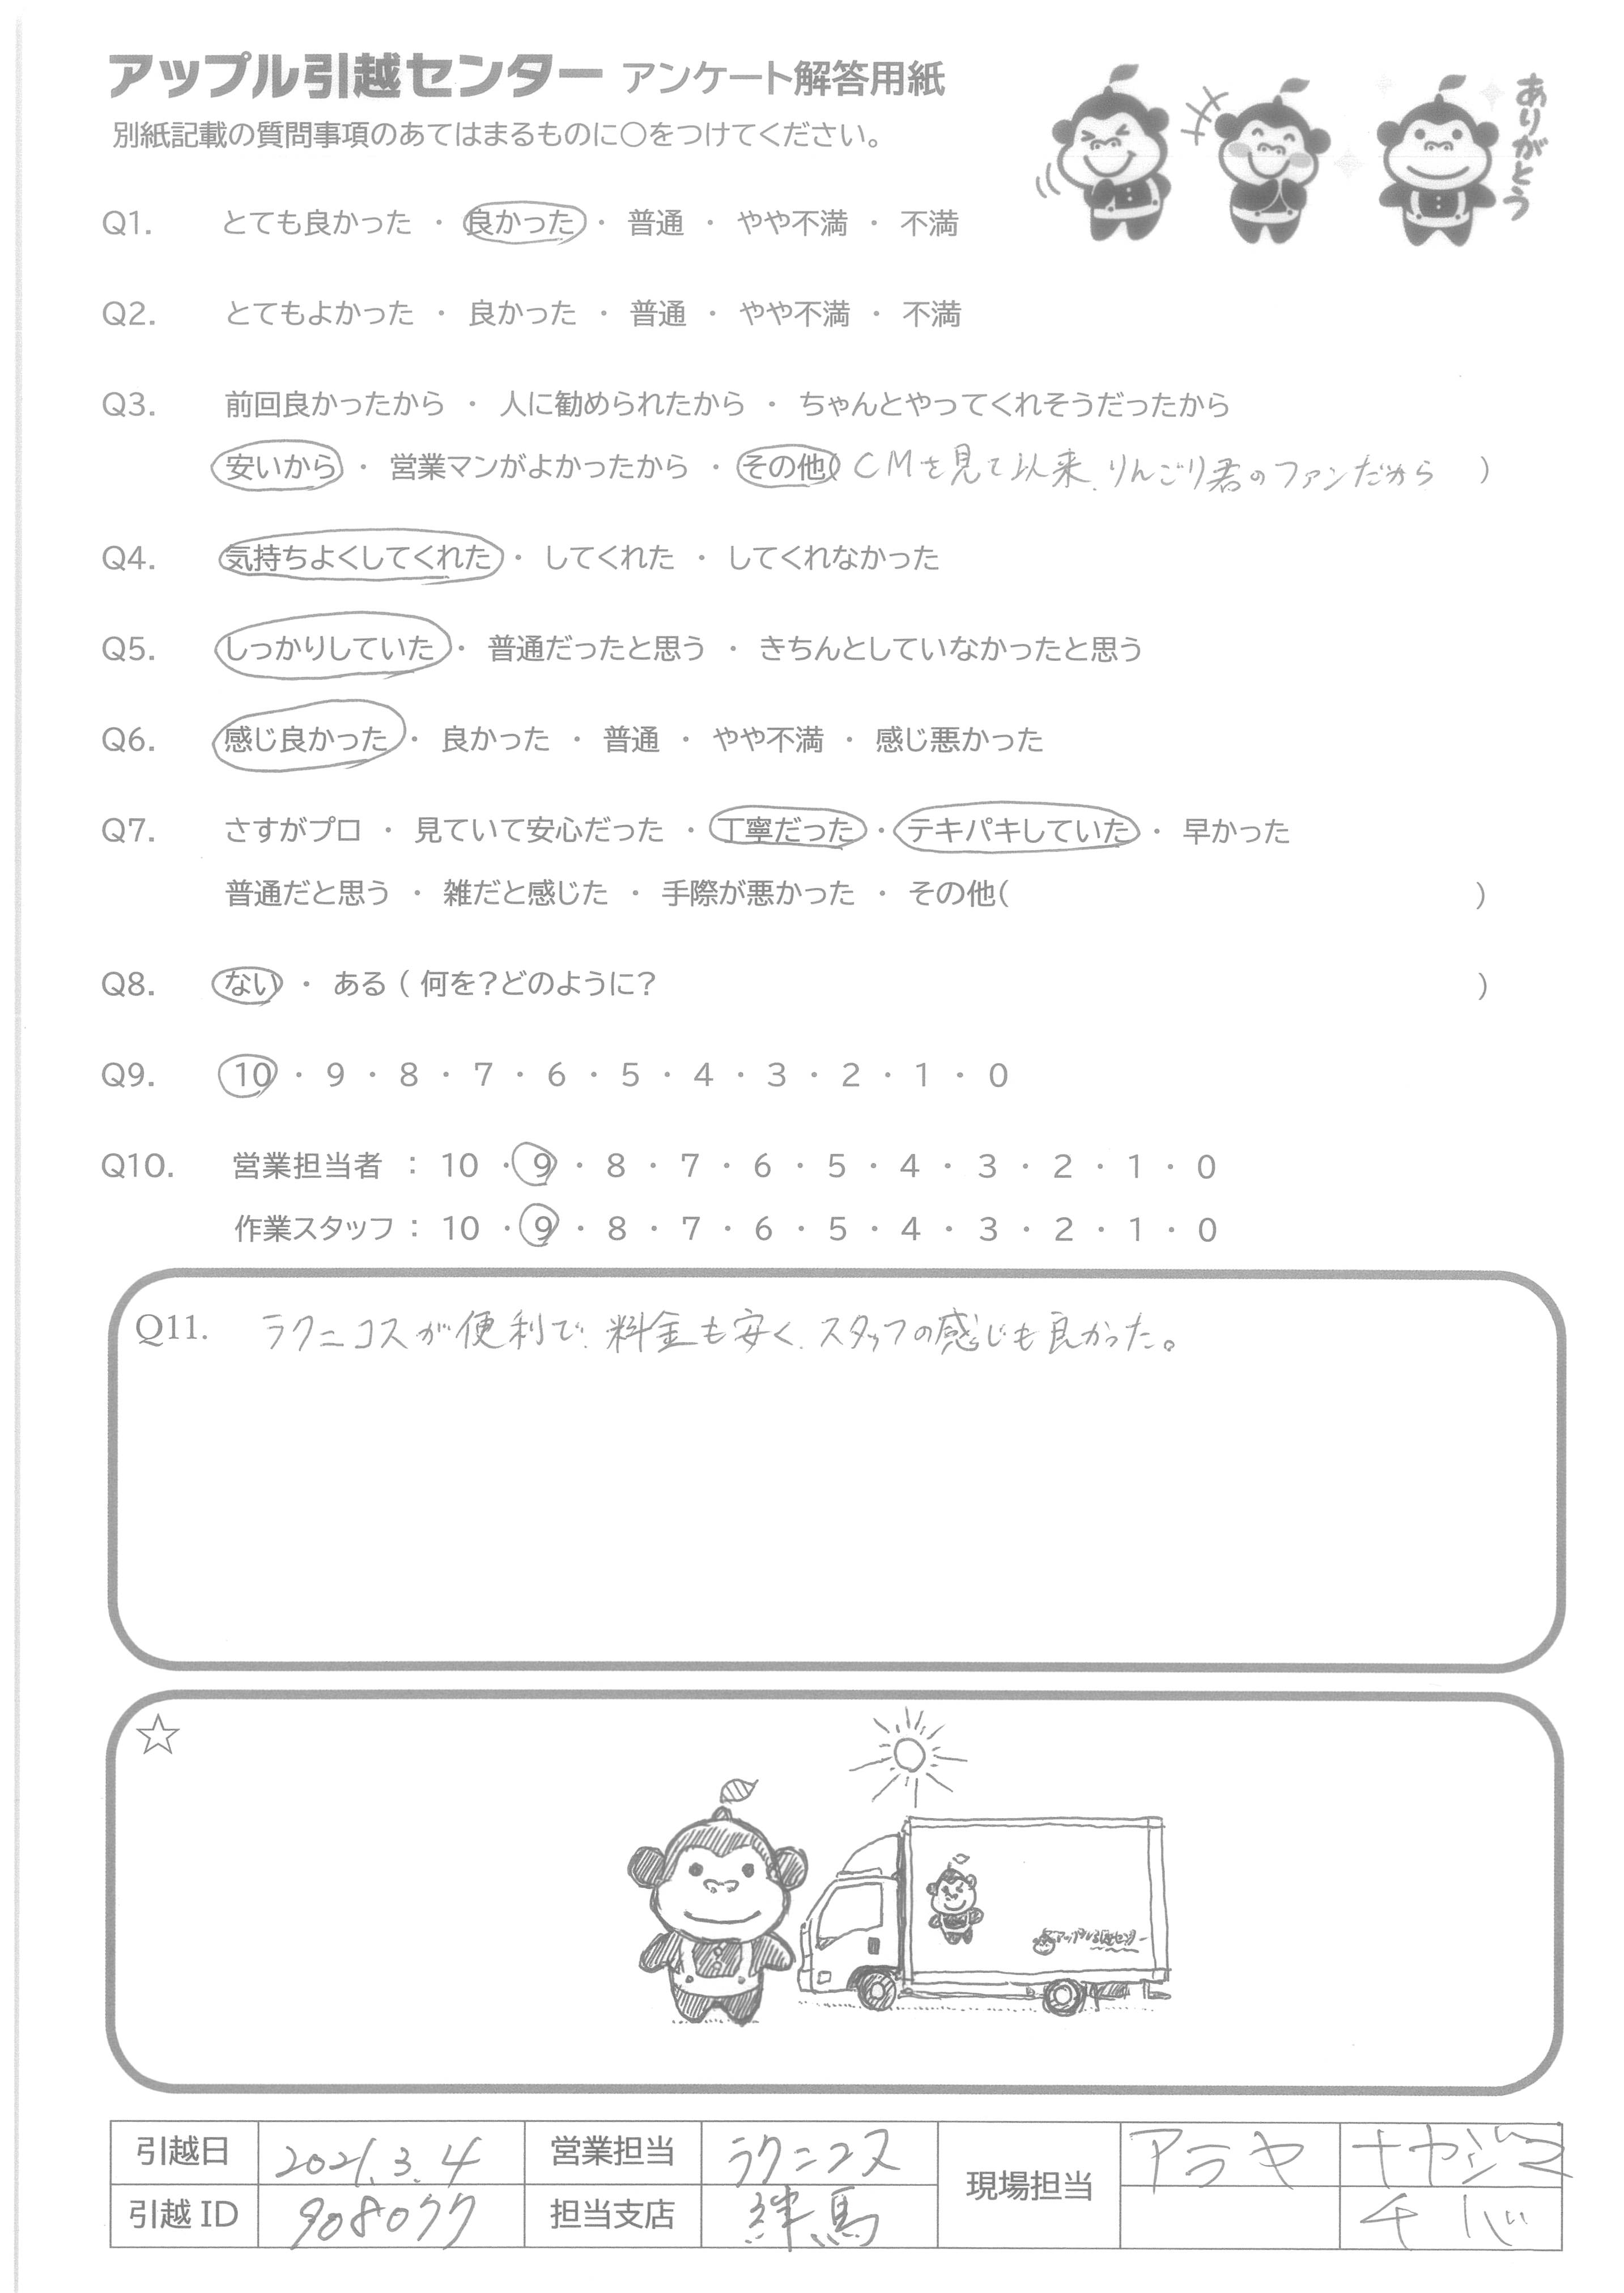 アップル引越センター アンケート解答用紙
別紙記載の質問事項のあてはまるものに○をつけてください。
ありがとう
Q1. とても良かった ・ 良かった ・ 普通 ・ やや不満 ・ 不満
Q2. とてもよかった ・ 良かった ・ 普通 ・ やや不満 ・ 不満
Q3. 前回良かったから ・ 人に勧められたから ・ ちゃんとやってくれそうだったから
安いから ・ 営業マンがよかったから ・ その他( CMを見て以来、りんごり君のファンだから )
Q4. 気持ちよくしてくれた ・ してくれた ・ してくれなかった
Q5. しっかりしていた ・ 普通だったと思う ・ きちんとしていなかったと思う
Q6. 感じ良かった ・ 良かった ・ 普通 ・ やや不満 ・ 感じ悪かった
Q7. さすがプロ ・ 見ていて安心だった ・ 丁寧だった ・ テキパキしていた ・ 早かった
普通だと思う ・ 雑だと感じた ・ 手際が悪かった ・ その他( )
Q8. ない ・ ある ( 何を?どのように? )
Q9. 10 ・ 9 ・ 8 ・ 7 ・ 6 ・ 5 ・ 4 ・ 3 ・ 2 ・ 1 ・ 0
Q10. 営業担当者 : 10 ・ 9 ・ 8 ・ 7 ・ 6 ・ 5 ・ 4 ・ 3 ・ 2 ・ 1 ・ 0
作業スタッフ : 10 ・ 9 ・ 8 ・ 7 ・ 6 ・ 5 ・ 4 ・ 3 ・ 2 ・ 1 ・ 0
Q11. ラクニコスが便利で、料金も安く、スタッフの感じも良かった。
☆
アップル引越センター
引越日 2021.3.4 営業担当 ラクニコス 現場担当 アラヤ ナヤジマ
引越ID 908077 担当支店 練馬 チバ